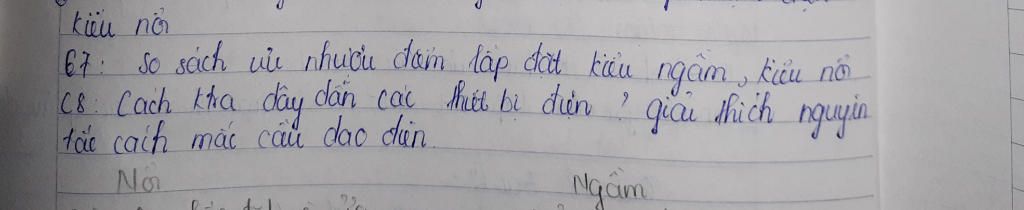 kiểu nổi
C7: So sách ưu nhược điểm lắp đặt kiểu ngầm, kiểu nổi
C8: Cách kha dây dẫn các thiết bị điện? giải thích nguyên
tắc cách mắc cầu dao điện.
Nổi Ngầm